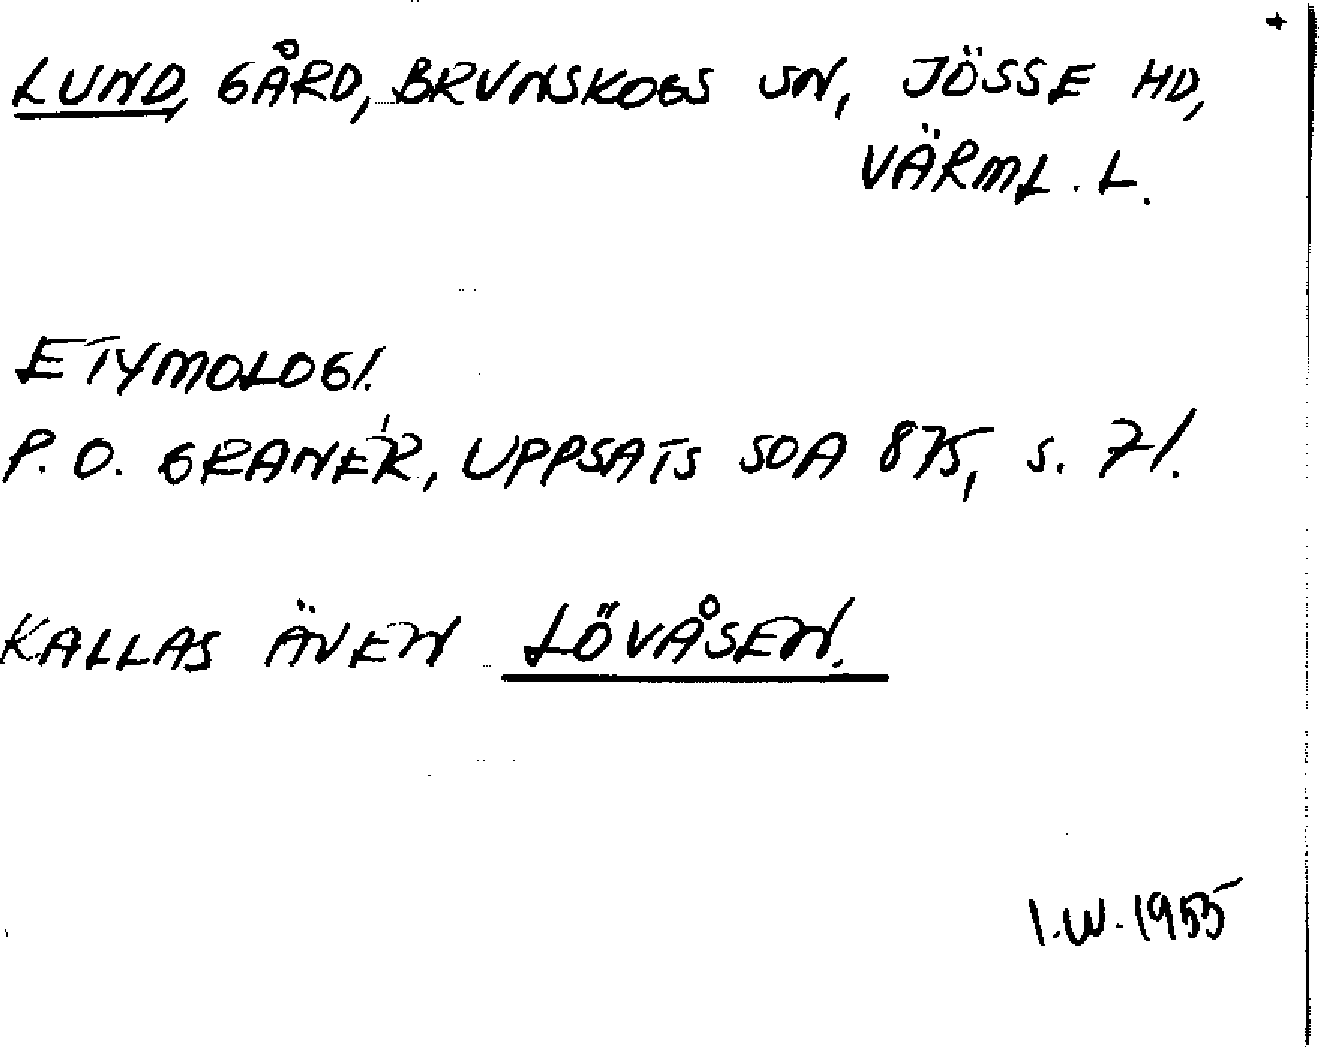 +
LUND, GÅRD, BRUNSKOGS SN, JÖSSE HD,
VÄRML. L.
ETYMOLOGI.
P. O. GRANÉR, UPPSATS SOA 875, s. 71.
KALLAS ÄVEN LÖVÅSEN.
I.W. 1955